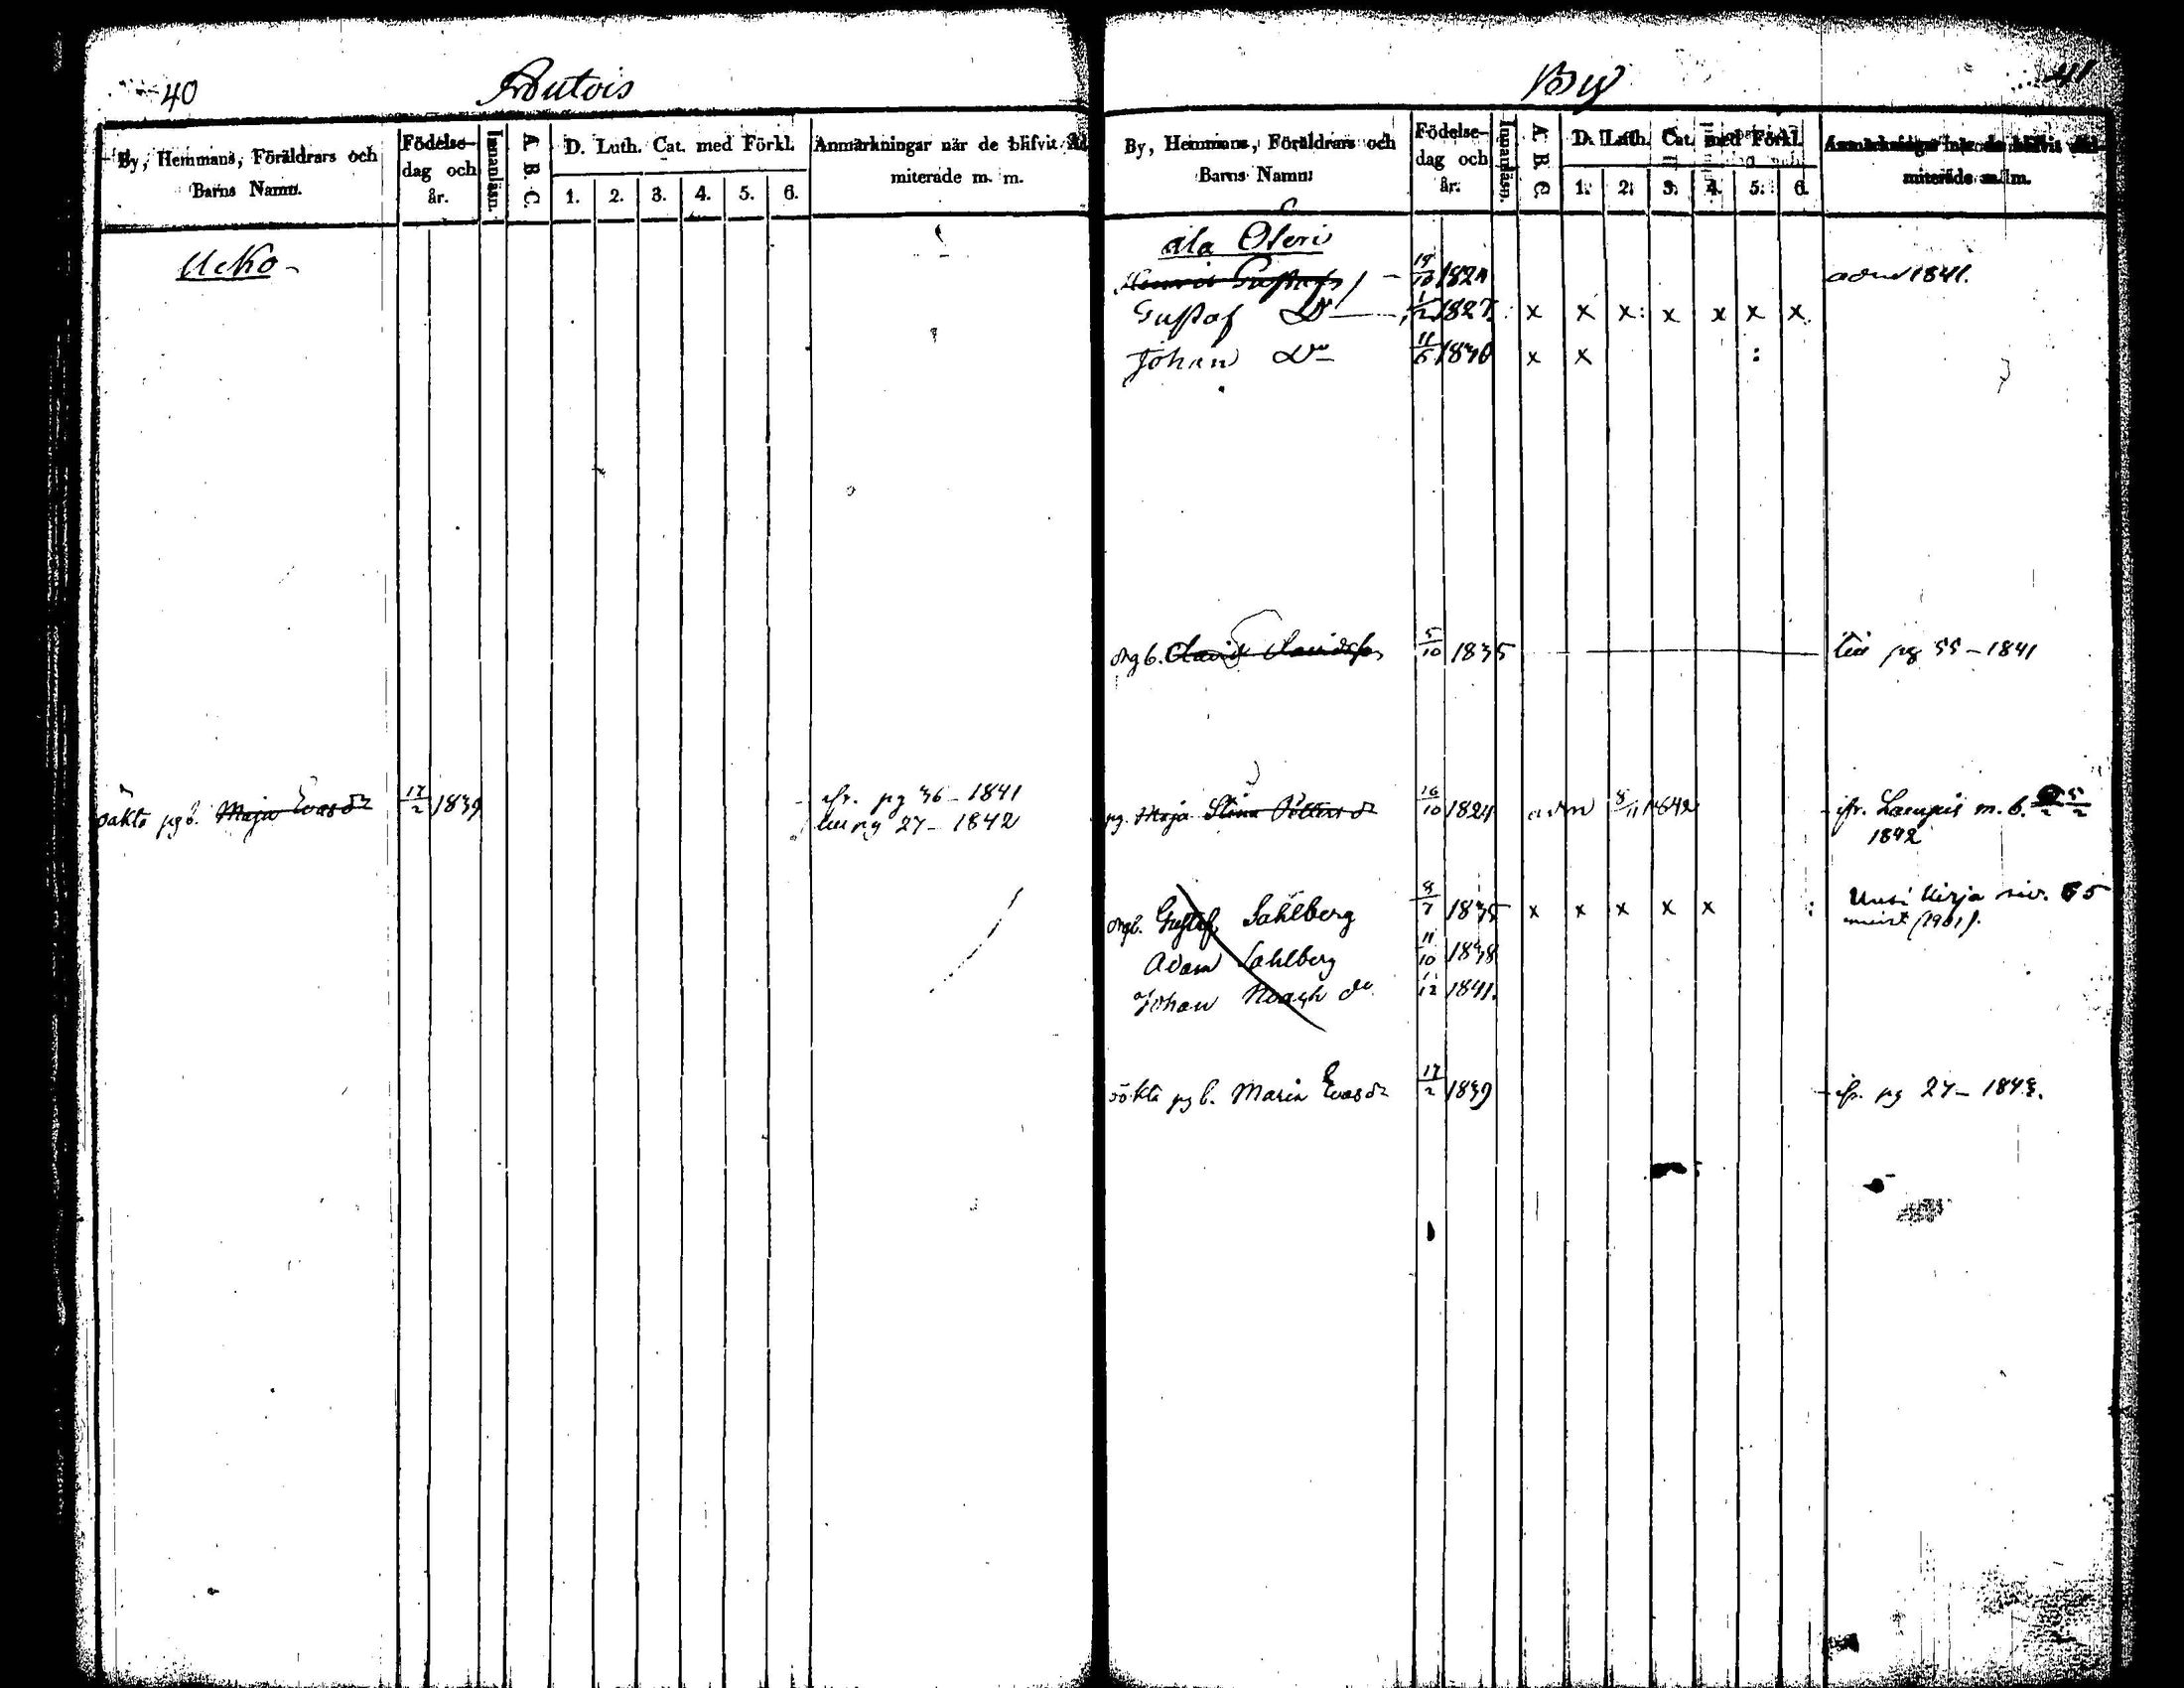 40
Autois
By, Hemmans, Föräldrars och Barns Namn.
Födelse-dag och år.
Innanläsn.
A. B. C.
D. Luth. Cat. med Förkl.
1. 2. 3. 4. 5. 6.
Anmärkningar när de blifvit Ad-
miterade m. m.
Ucko
oäkta pgb. Maja Evasdr 17/2 1839 ifr. pg 36 - 1841
till pg 27 - 1842
By
41
By, Hemmans, Föräldrars och Barns Namn
Födelse-dag och år.
Innanläsn.
A. B. C.
D. Luth. Cat. med Förkl.
1. 2. 3. 4. 5. 6.
Anmärkningar när de blifvit Ad-
miterade m. m.
ala Oleri
Gustafs 19/10 1824 adm 1841.
Gustaf Do 1827 x x x x x x x
Johan Do 11/5 1830 x x
5/10 1835 till pg 55 - 1841
pg. Maja Stina 16/10 1824 adm 1842 ifr. m. b.
1842
Gustaf Sahlberg 8/7 1835 x x x x x Uusi Kirja siv. 65
Adam Sahlberg 11/10 1838
Johan Noach do 1/12 1841.
oäkta pgb. Maria Evasdr 17/2 1839 ifr. pg 27 - 1843.